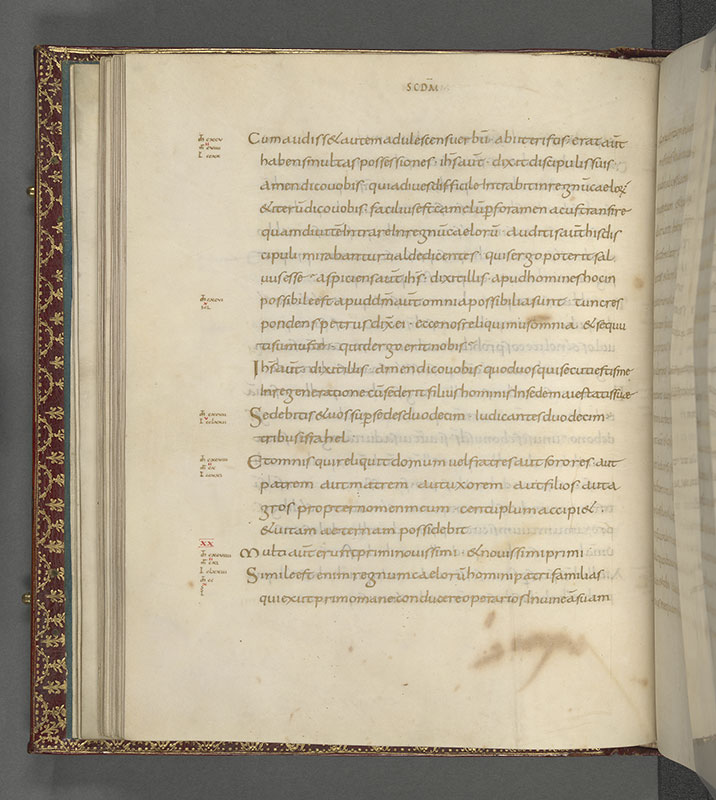 SCDM̄
Cum audiss& autem adulescens uerbū· abiit tristis· erat aūt
habens multas possessiones· ihs aūt· dixit discipulis suis·
amen dico uobis· quia diues difficile intrabit in regnū caeloꝝ
& iterū dico uobis· facilius est camelū p foramen acus transire
quam diuitē intrare in regnū caelorū· auditis aūt his dis
cipuli mirabantur ualde dicentes· quis ergo poterit sal
uus esse· aspiciens aūt ihs· dixit illis· apud homines hoc in
possibile est· apud dm̄ aūt omnia possibilia sunt· tunc res
pondens petrus dix̄ ei· ecce nos reliquimus omnia· & secu
ti sumus te· quid ergo erit nobis·
Ihs aūt dixit illis· amen dico uobis quod uos qui secuti estis me
In regeneratione cū sederit filius hominis in sede maiestatis suae
Sedebitis & uos sup sedes duodecim· iudicantes duodecim·
tribus israhel·
Et omnis qui reliquit domum uel fratres aut sorores aut
patrem aut matrem aut uxorem aut filios aut a
gros propter nomen meum· centuplum accipi&·
& uitam aeternam possidebit
XX
Multi aūt erunt primi nouissimi· & nouissimi primi
Simile est enim regnum caelorū homini patri familias
qui exiit primo mane conducere operarios in uineā suam